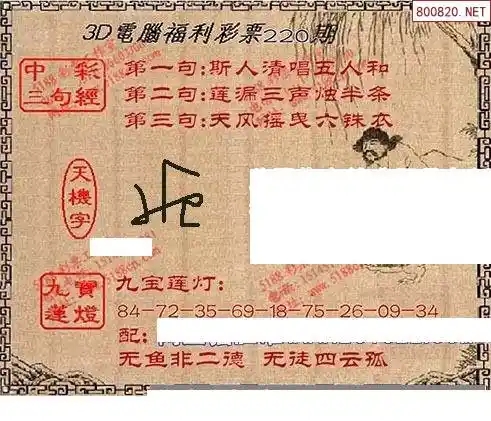 800820.NET
3D電腦福利彩票220期
中彩
三句經
第一句:斯人清唱五人和
第二句:莲漏三声烛半条
第三句:天风摇曳六铢衣
天機字
九寶
蓮燈
九宝莲灯:
84-72-35-69-18-75-26-09-34
配:
无鱼非二德 无徒四云孤